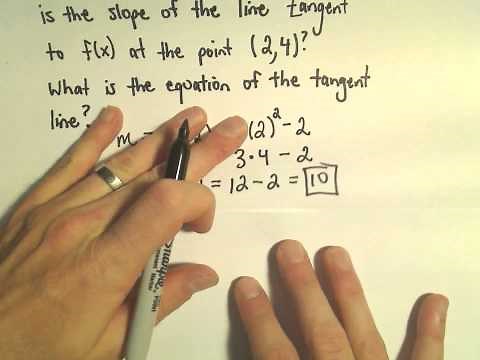 is the slope of the line tangent
to f(x) at the point (2,4)?
What is the equation of the tangent
line?
m = 2) (2)² - 2
3·4 - 2
= 12 - 2 = 10
Sharpie